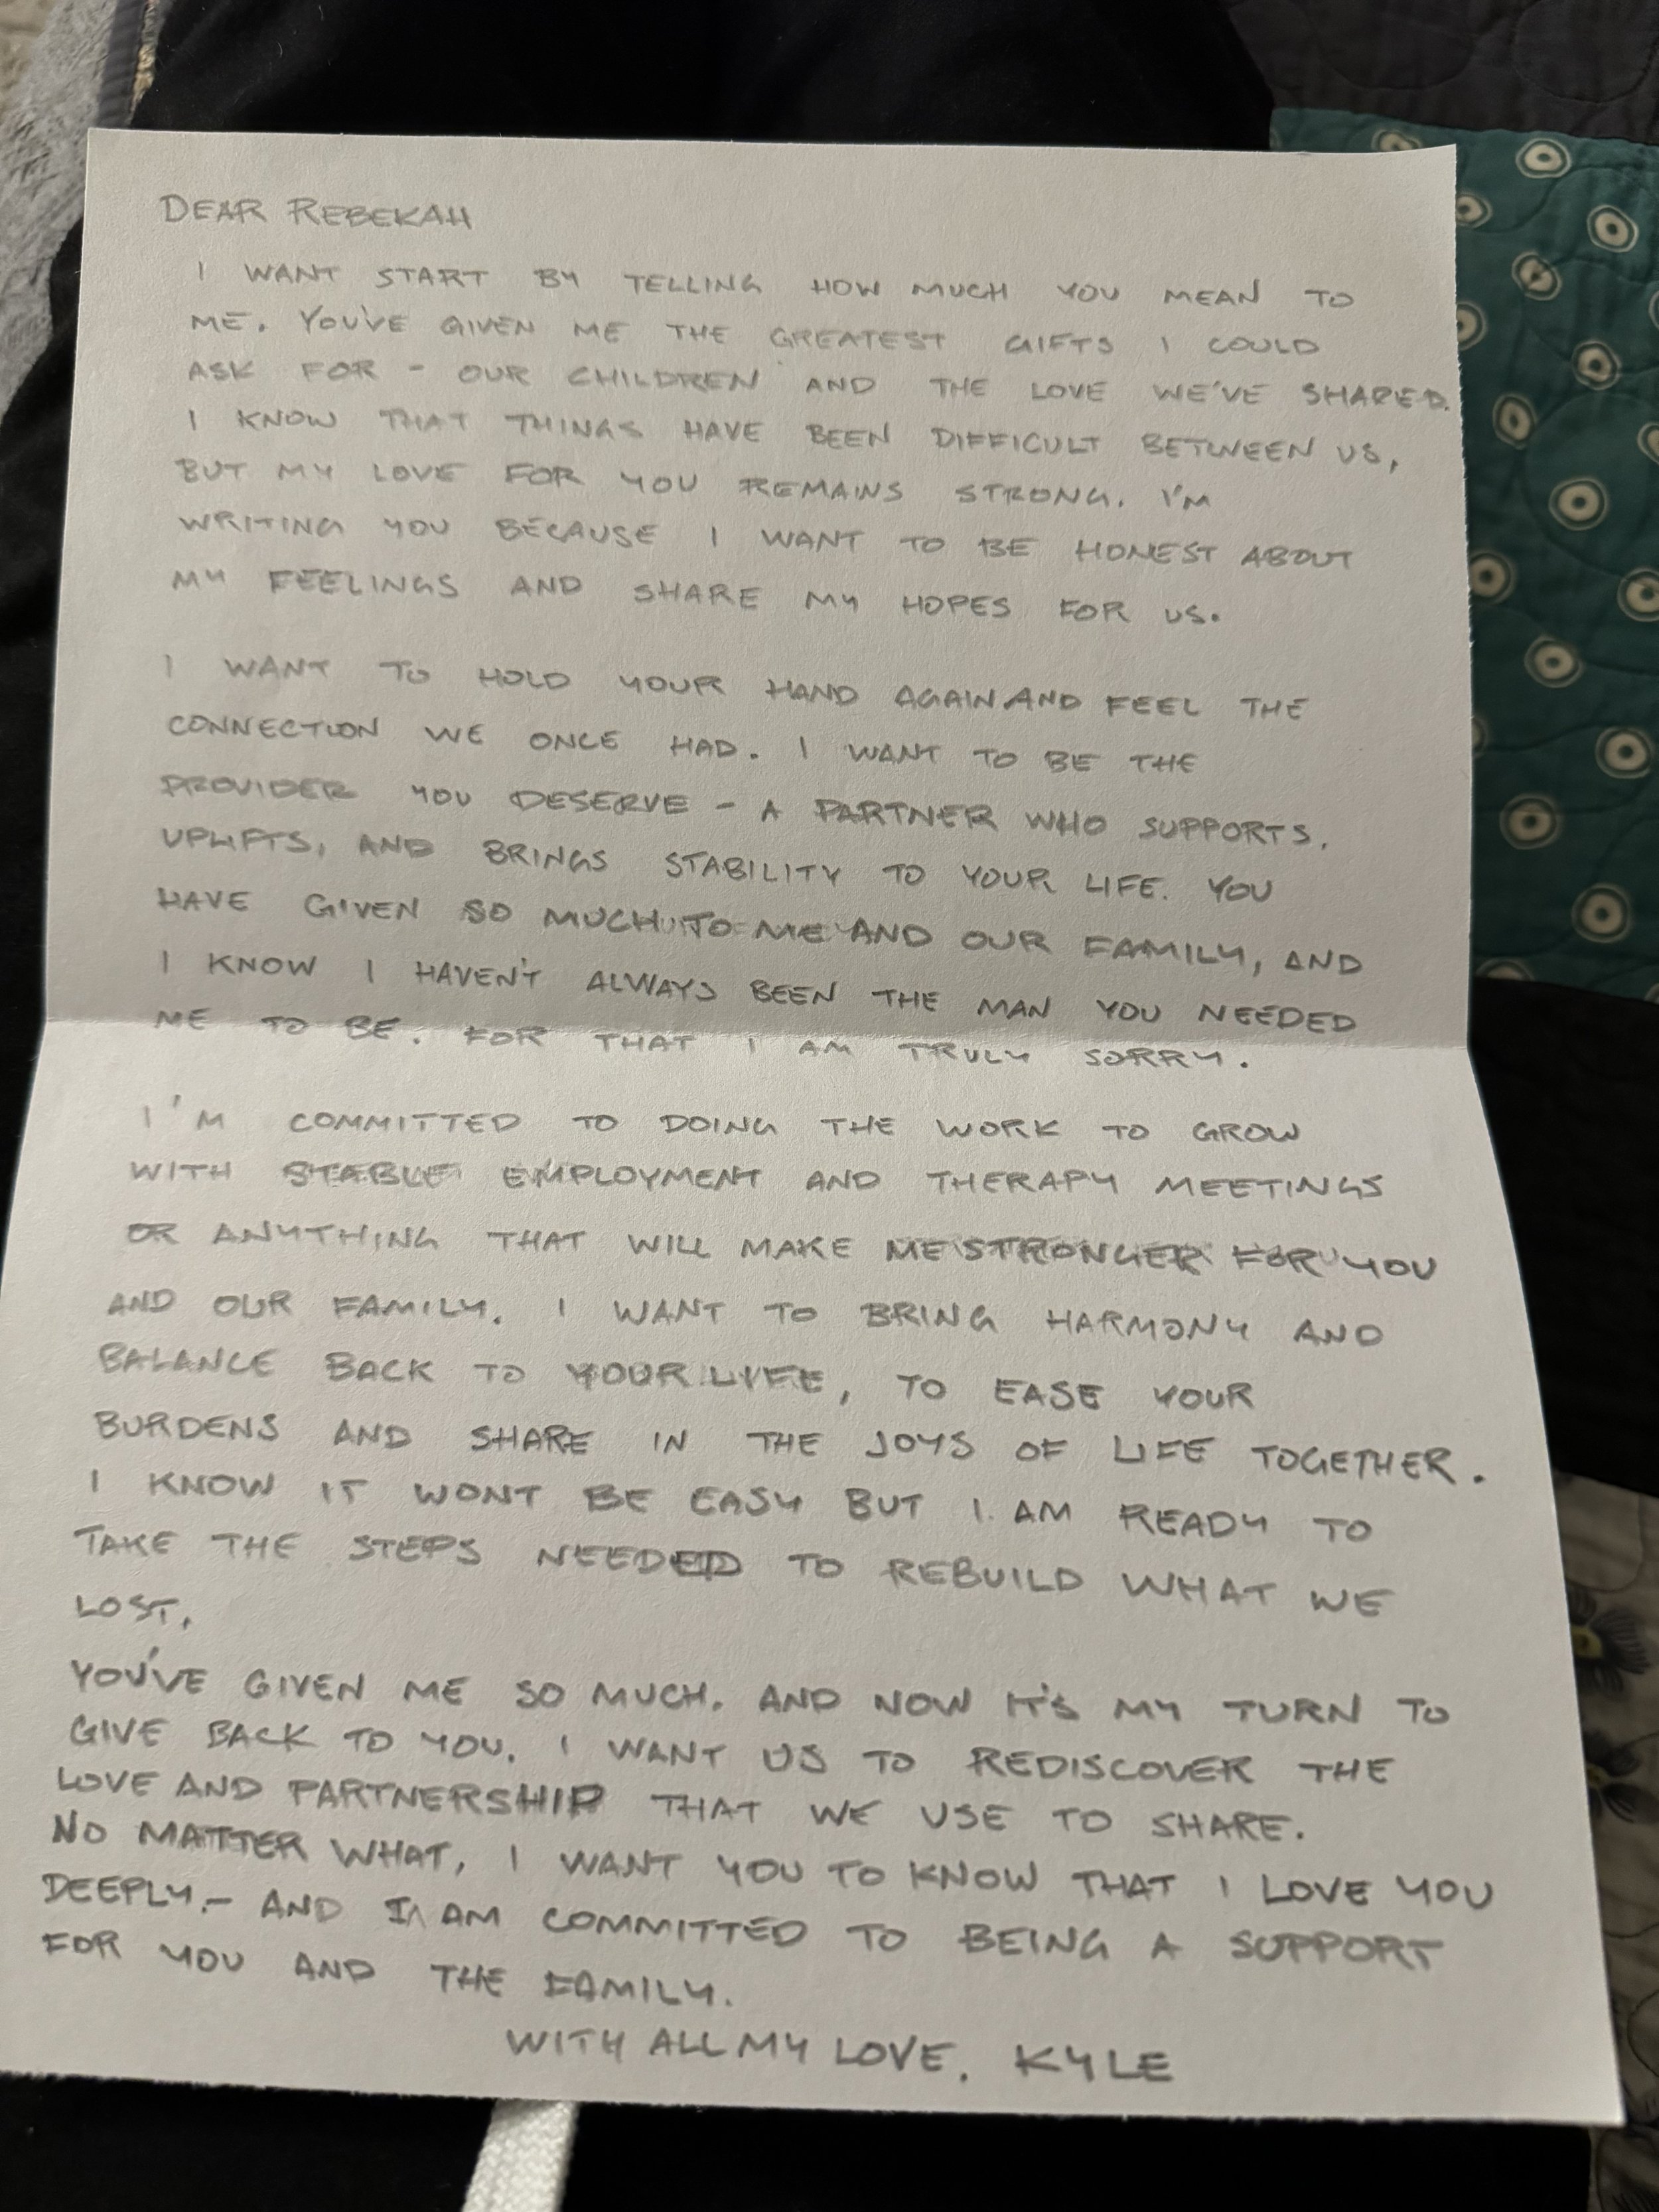 DEAR REBEKAH
I WANT START BY TELLING HOW MUCH YOU MEAN TO
ME. YOU'VE GIVEN ME THE GREATEST GIFTS I COULD
ASK FOR - OUR CHILDREN AND THE LOVE WE'VE SHARED.
I KNOW THAT THINGS HAVE BEEN DIFFICULT BETWEEN US,
BUT MY LOVE FOR YOU REMAINS STRONG. I'M
WRITING YOU BECAUSE I WANT TO BE HONEST ABOUT
MY FEELINGS AND SHARE MY HOPES FOR US.
I WANT TO HOLD YOUR HAND AGAIN AND FEEL THE
CONNECTION WE ONCE HAD. I WANT TO BE THE
PROVIDER YOU DESERVE - A PARTNER WHO SUPPORTS,
UPLIFTS, AND BRINGS STABILITY TO YOUR LIFE. YOU
HAVE GIVEN SO MUCH TO ME AND OUR FAMILY, AND
I KNOW I HAVEN'T ALWAYS BEEN THE MAN YOU NEEDED
ME TO BE. FOR THAT I AM TRULY SORRY.
I'M COMMITTED TO DOING THE WORK TO GROW
WITH STABLE EMPLOYMENT AND THERAPY MEETINGS
OR ANYTHING THAT WILL MAKE ME STRONGER FOR YOU
AND OUR FAMILY. I WANT TO BRING HARMONY AND
BALANCE BACK TO YOUR LIFE, TO EASE YOUR
BURDENS AND SHARE IN THE JOYS OF LIFE TOGETHER.
I KNOW IT WONT BE EASY BUT I AM READY TO
TAKE THE STEPS NEEDED TO REBUILD WHAT WE
LOST.
YOU'VE GIVEN ME SO MUCH. AND NOW IT'S MY TURN TO
GIVE BACK TO YOU. I WANT US TO REDISCOVER THE
LOVE AND PARTNERSHIP THAT WE USE TO SHARE.
NO MATTER WHAT, I WANT YOU TO KNOW THAT I LOVE YOU
DEEPLY. - AND I AM COMMITTED TO BEING A SUPPORT
FOR YOU AND THE FAMILY.
WITH ALL MY LOVE, KYLE